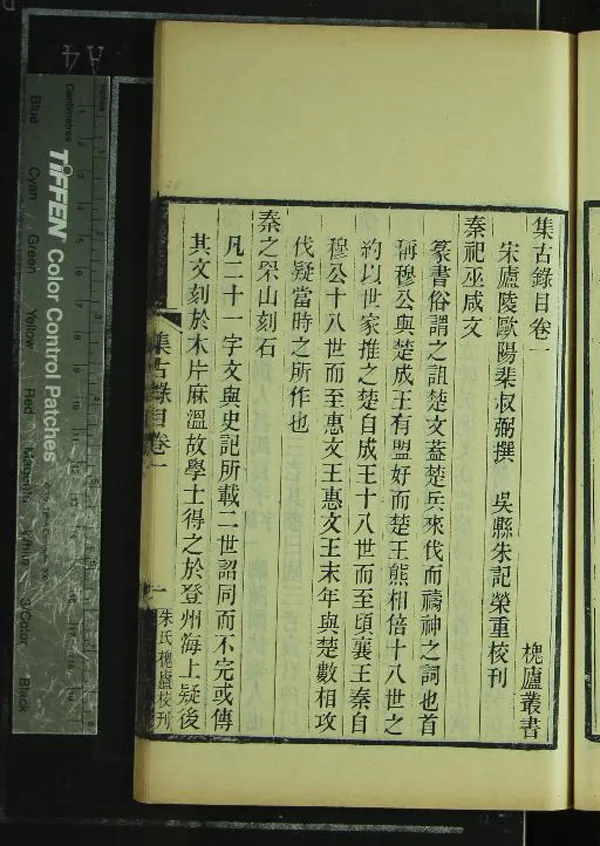 集古錄目卷一
槐廬叢書
宋廬陵歐陽棐叔弼撰 吳縣朱記榮重校刊
秦祀巫咸文
篆書俗謂之詛楚文蓋楚兵來伐而禱神之詞也首
稱穆公與楚成王有盟好而楚王熊相倍十八世之
約以世家推之楚自成王十八世而至頃襄王秦自
穆公十八世而至惠文王惠文王末年與楚數相攻
伐疑當時之所作也
秦之罘山刻石
凡二十一字文與史記所載二世詔同而不完或傳
其文刻於木片麻溫故學士得之於登州海上疑後
集古錄目卷一
一
朱氏槐廬校刊
A4
Centimetres
TIFFEN Color Control Patches
Blue
Cyan
Green
Yellow
Red
Magenta
White
3/Color
Black